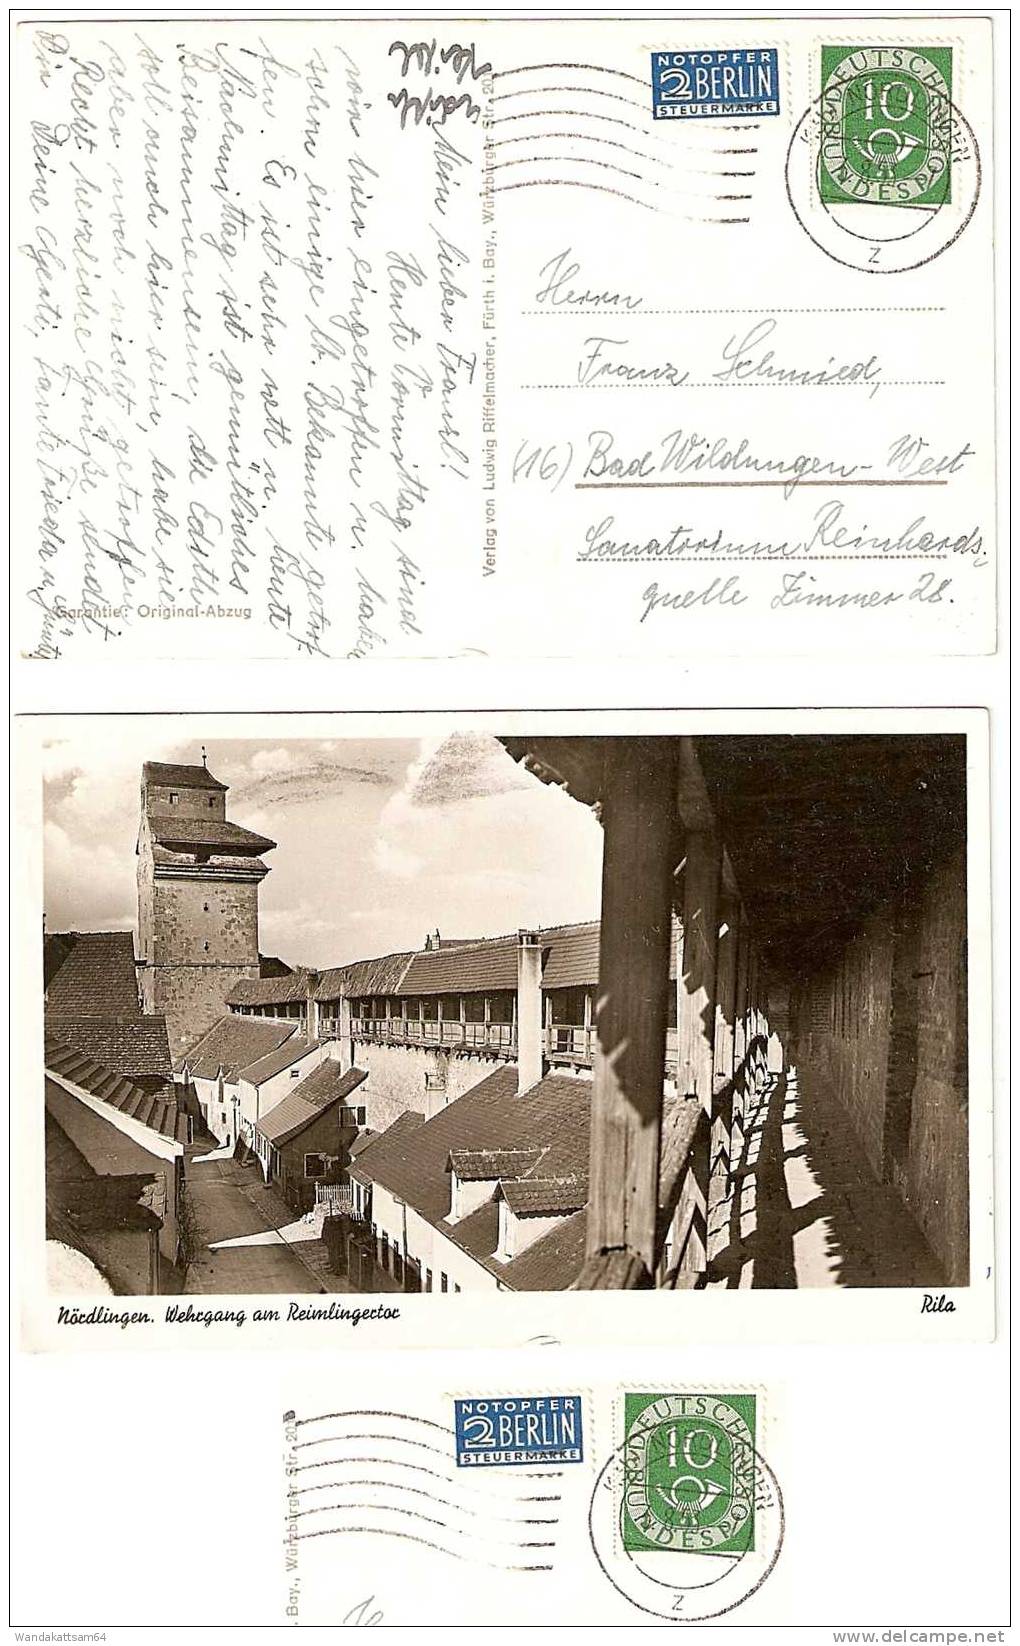 NOTOPFER
2 BERLIN
STEUERMARKE
DEUTSCHE BUNDESPOST
10
NÖRDLINGEN
z
Mein lieber Franzl!
Heute Vormittag sind
wir hier eingetroffen u. haben
schon einige lb. Bekannte getrof-
fen. Es ist sehr nett u. heute
Nachmittag ist gemütliches
Beisammensein, die Edith
soll auch hier sein, habe sie
aber noch nicht getroffen
Recht herzliche Grüße sendet
Dir Deine Gerti, Tante Frieda u.
Garantie: Original-Abzug
Verlag von Ludwig Riffelmacher, Fürth i. Bay., Würzburger Str. 20
Herrn
Franz Schmied,
(16) Bad Wildungen-West
Sanatorium Reinhards-
quelle Zimmer 28.
Nördlingen. Wehrgang am Reimlingertor
Rila
NOTOPFER
2 BERLIN
STEUERMARKE
DEUTSCHE BUNDESPOST
10
NÖRDLINGEN
z
. Bay., Würzburger Str. 20
Wandakattsam64
www.delcampe.net